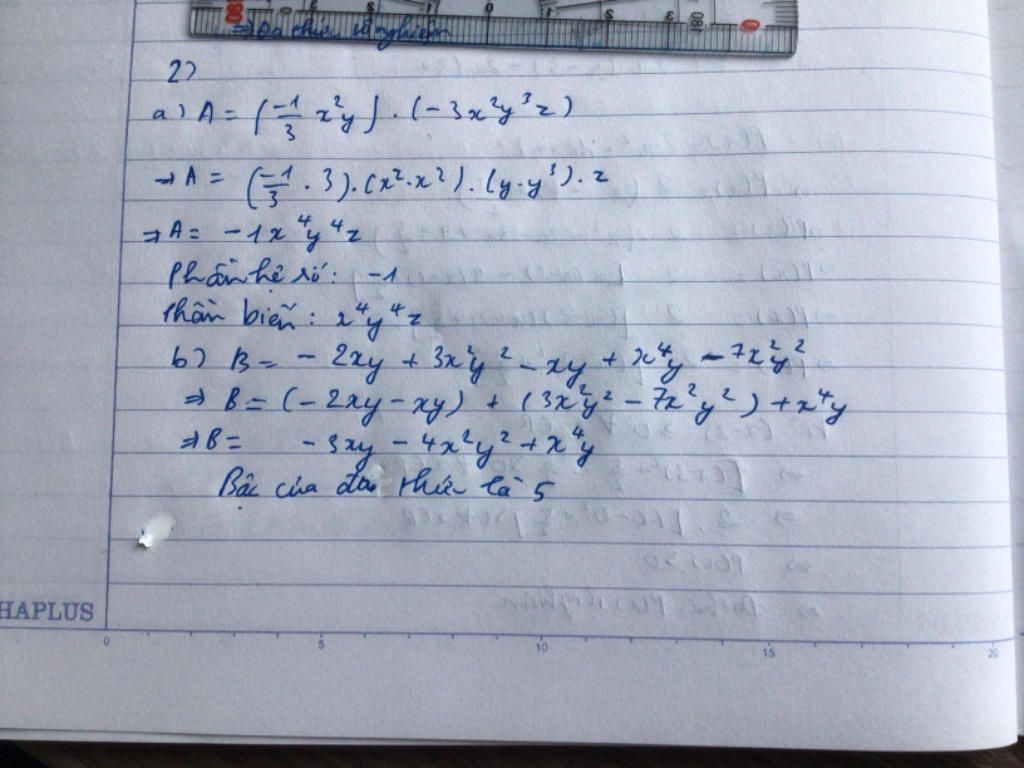 ⇒ Đa thức vô nghiệm
2)
a) A = (-1/3 x²y) . (-3x²y³z)
→ A = (-1/3 . 3) . (x² . x²) . (y . y³) . z
⇒ A = -1x⁴y⁴z
Phần hệ số: -1
Phần biến: x⁴y⁴z
b) B = - 2xy + 3x²y² - xy + x⁴y - 7x²y²
⇒ B = (-2xy - xy) + (3x²y² - 7x²y²) + x⁴y
⇒ B = -3xy - 4x²y² + x⁴y
Bậc của đa thức là 5
HAPLUS
0 5 10 15 20